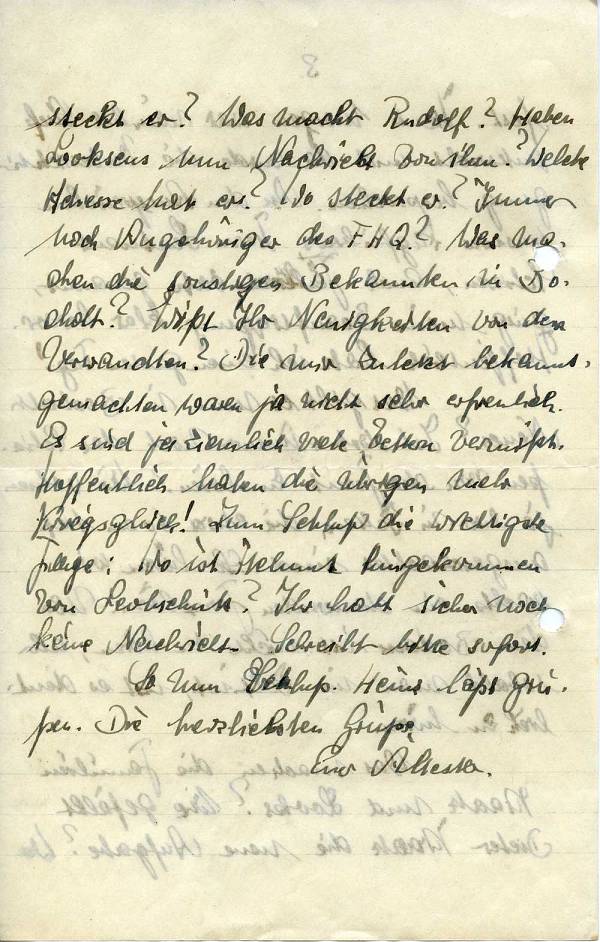 steckt er? Was macht Rudolf? Haben
Looksens nun Nachricht von ihm? Welche
Adresse hat er? Wo steckt er? Immer
noch Angehöriger des FHQ? Was ma-
chen die sonstigen Bekannten in Bo-
cholt? Wißt Ihr Neuigkeiten von den
Verwandten? Die mir zuletzt bekannt-
gemachten waren ja nicht sehr erfreulich.
Es sind ja ziemlich viele Vettern vermißt.
Hoffentlich haben die übrigen mehr
Kriegsglück! Zum Schluß die wichtigste
Frage: Wo ist Helmut hingekommen
von Leobschütz? Ihr habt sicher noch
keine Nachricht. Schreibt bitte sofort.
So nun Schluß. Heinz läßt grü-
ßen. Die herzlichsten Grüße
Euer Ältester.